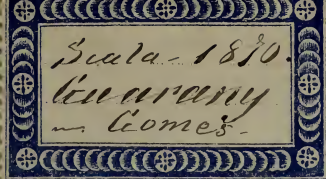 Scala - 1870.
Guarany
m Gomes -